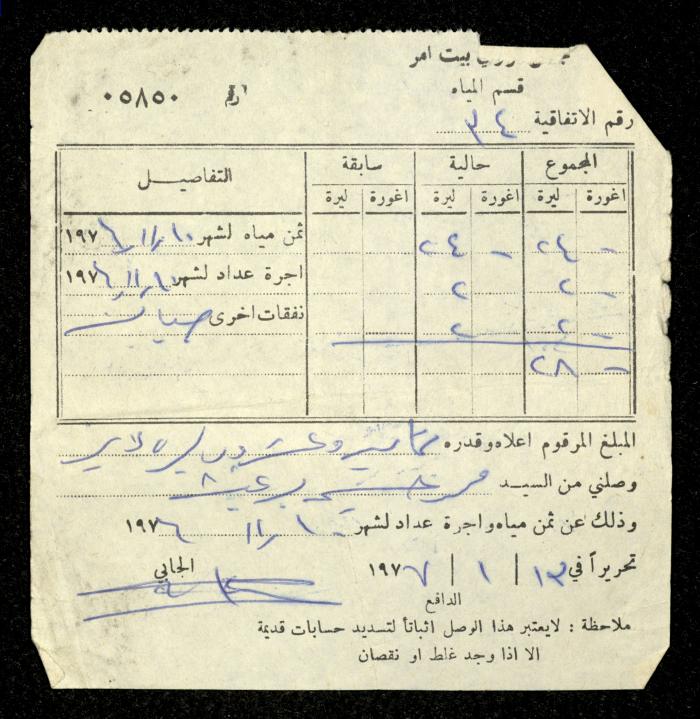 بيت امر
قسم المياه
رقم ٠٥٨٥٠
رقم الاتفاقية ٣٤
التفاصيل سابقة حالية المجموع
ليرة اغورة ليرة اغورة ليرة اغورة
ثمن مياه لشهر ١٠/١١ ١٩٧٦ ٢٤ - ٢٤ -
اجرة عداد لشهر ١٠/١١ ١٩٧٦ ٢ ٢ -
نفقات اخرى صيانة ٢ ٢ -
٢٨ -
المبلغ المرقوم اعلاه وقدره ثمانية وعشرون ليرة لا غير
وصلني من السيد
وذلك عن ثمن مياه واجرة عداد لشهر ١٠/١١ ١٩٧٦
تحريراً في ١٣ / ١ / ١٩٧٧
الجابي
الدافع
ملاحظة : لايعتبر هذا الوصل اثباتاً لتسديد حسابات قديمة
الا اذا وجد غلط او نقصان